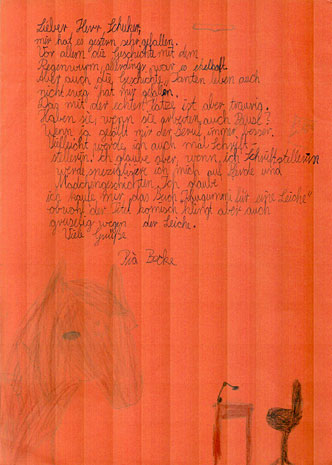 Lieber Herr Schuher,
mir hat es gestern sehr gefallen.
Vor allem die Geschichte mit dem
Regenwurm allerdings war es eckelhaft
Aber auch die Geschichte Tanten leben auch
nicht ewig hat mir gefallen.
Das mit der echten Katze ist aber traurig.
Haben sie, wenn sie arbeiten, auch Pause?
ja gefällt mir der Beruf immer besser.
Vielleicht werde ich auch mal Schrift-
stellerin. Ich glaube aber, wenn ich Schriftstellerin
werde, spezialisiere ich mich auf Pferde und
Mädchengeschichten. Ich glaube
ich kaufe mir das Buch „Kaugummi für eine Leiche"
obwohl der Titel komisch klingt aber auch
gruselig wegen der Leiche.
Viele Grüße
Pia Becke